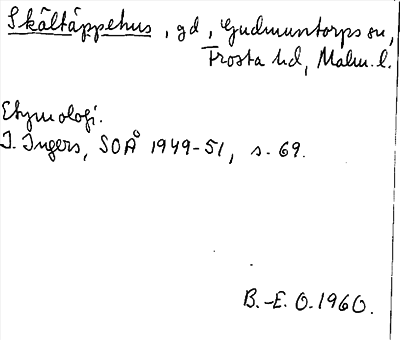 Skåltäppehus, gd, Gudmuntorps sn,
Frosta hd, Malm. l.
Etymologi.
I. Ingers, SOÅ 1949-51, s. 69.
B.-E. O. 1960.